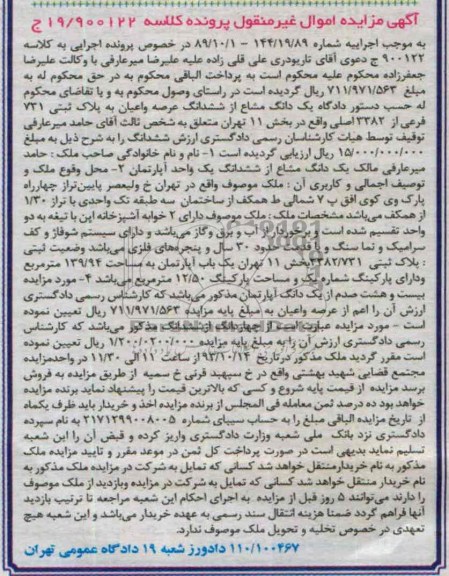 آگهی مزایده اموال غیرمنقول پرونده کلاسه ۱۹/۹۰۰۱۲۲ ج
به موجب اجراییه شماره ۱۴۴/۱۹/۸۹ – ۸۹/۱۰/۱ در خصوص پرونده اجرایی به کلاسه
۹۰۰۱۲۲ ج دعوی آقای تاریودری علی قلی زاده علیه علیرضا میرعارفی با وکالت علیرضا
جعفرزاده محکوم علیه محکوم است به پرداخت الباقی محکوم به در حق محکوم له به
مبلغ ۷۱۱/۹۷۱/۵۶۳ ریال گردیده است در راستای وصول محکوم به و یا تقاضای محکوم
له حسب دستور دادگاه یک دانگ مشاع از ششدانگ عرصه واعیان به پلاک ثبتی ۷۳۱
فرعی از ۳۳۸۲ اصلی واقع در بخش ۱۱ تهران متعلق به شخص ثالث آقای حامد میرعارفی
توقیف توسط هیات کارشناسان رسمی دادگستری ارزش ششدانگ را به شرح ذیل به مبلغ
۱۵/۰۰۰/۰۰۰/۰۰۰ ریال ارزیابی گردیده است ۱- نام و نام خانوادگی صاحب ملک : حامد
میرعارفی مالک یک دانگ مشاع از ششدانگ یک واحد آپارتمان ۲- محل وقوع ملک و
توصیف اجمالی و کاربری آن : ملک موصوف واقع در تهران خ ولیعصر پایین‌تراز چهارراه
پارک وی کوی افق پ ۷ شمالی ط همکف از ساختمان سه طبقه تک واحدی با تراز ۱/۳۰
از همکف می‌باشد مشخصات ملک : ملک موصوف دارای ۲ خوابه آشپزخانه اپن با تیغه به دو
واحد تقسیم شده است و برخوردار از آب و برق وگاز می‌باشد و دارای سیستم شوفاژ و کف
سرامیک و نما سنگ و با قدمت حدود ۳۰ سال و پنجره‌های فلزی می‌باشد وضعیت ثبتی
: پلاک ثبتی ۳۳۸۲/۷۳۱ بخش ۱۱ تهران یک باب آپارتمان به مساحت ۱۳۹/۹۴ مترمربع
ودارای پارکینگ شماره یک و مساحت پارکینگ ۱۲/۵۰ مترمربع می‌باشد ۴- مورد مزایده
بیست و هشت صدم از یک دانگ آپارتمان مذکور می‌باشد که کارشناس رسمی دادگستری
ارزش آن را اعم از عرصه واعیان به مبلغ پایه مزایده ۷۱۱/۹۷۱/۵۶۳ ریال تعیین نموده
است - مورد مزایده عبارت است از چهاردانگ از ششدانگ مذکور می‌باشد که کارشناس
رسمی دادگستری ارزش آن را به مبلغ پایه مزایده ۱/۲۰۰/۰۲۰۰/۰۰۰ ریال تعیین نموده
است مقرر گردید ملک مذکور درتاریخ ۹۳/۱۰/۱۴ از ساعت ۱۱ الی ۱۱/۳۰ در واحدمزایده
مجتمع قضایی شهید بهشتی واقع در خ سپهبد قرنی خ سمیه از طریق مزایده به فروش
برسد مزایده از قیمت پایه شروع و کسی که بالاترین قیمت را پیشنهاد نماید برنده مزایده
خواهد بود ده درصد ثمن معامله فی المجلس از برنده مزایده اخذ و خریدار باید ظرف یکماه
از تاریخ مزایده الباقی مبلغ را به حساب سیبای شماره ۲۱۷۱۲۹۹۰۰۸۰۰۵ به نام سپرده
دادگستری نزد بانک ملی شعبه وزارت دادگستری واریز کرده و قبض آن را این شعبه
تسلیم نماید بدیهی است در صورت پرداخت کل ثمن در موعد مقرر و تایید مزایده ملک
مذکور به نام خریدارمنتقل خواهد شد کسانی که تمایل به شرکت در مزایده ملک مذکور به
نام خریدار منتقل خواهد شد کسانی که تمایل به شرکت در مزایده وبازدید از ملک موصوف
را دارند می‌توانند ۵ روز قبل از مزایده به اجرای احکام این شعبه مراجعه تا ترتیب بازدید
آنها فراهم گردد ضمنا هزینه انتقال سند رسمی به عهده خریدار می‌باشد و این شعبه هیچ
تعهدی در خصوص تخلیه و تحویل ملک موصوف ندارد.
۱۱۰/۱۰۰۴۶۷ دادورز شعبه ۱۹ دادگاه عمومی تهران